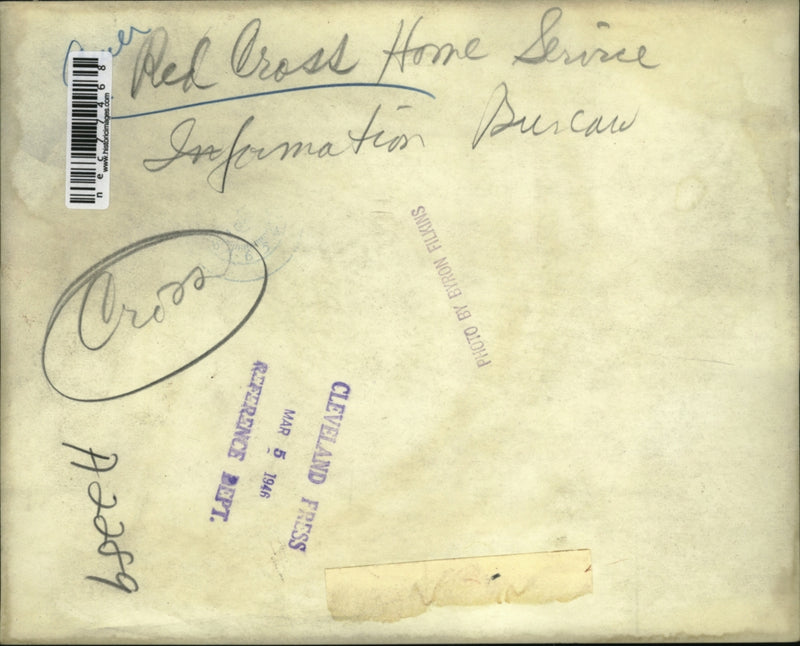 Red Cross Home Service
Information Bureau
nec77468
www.historicimages.com
Cross
PHOTO BY BYRON FILKINS
CLEVELAND PRESS
MAR 5 1946
REFERENCE DEPT.
A2289